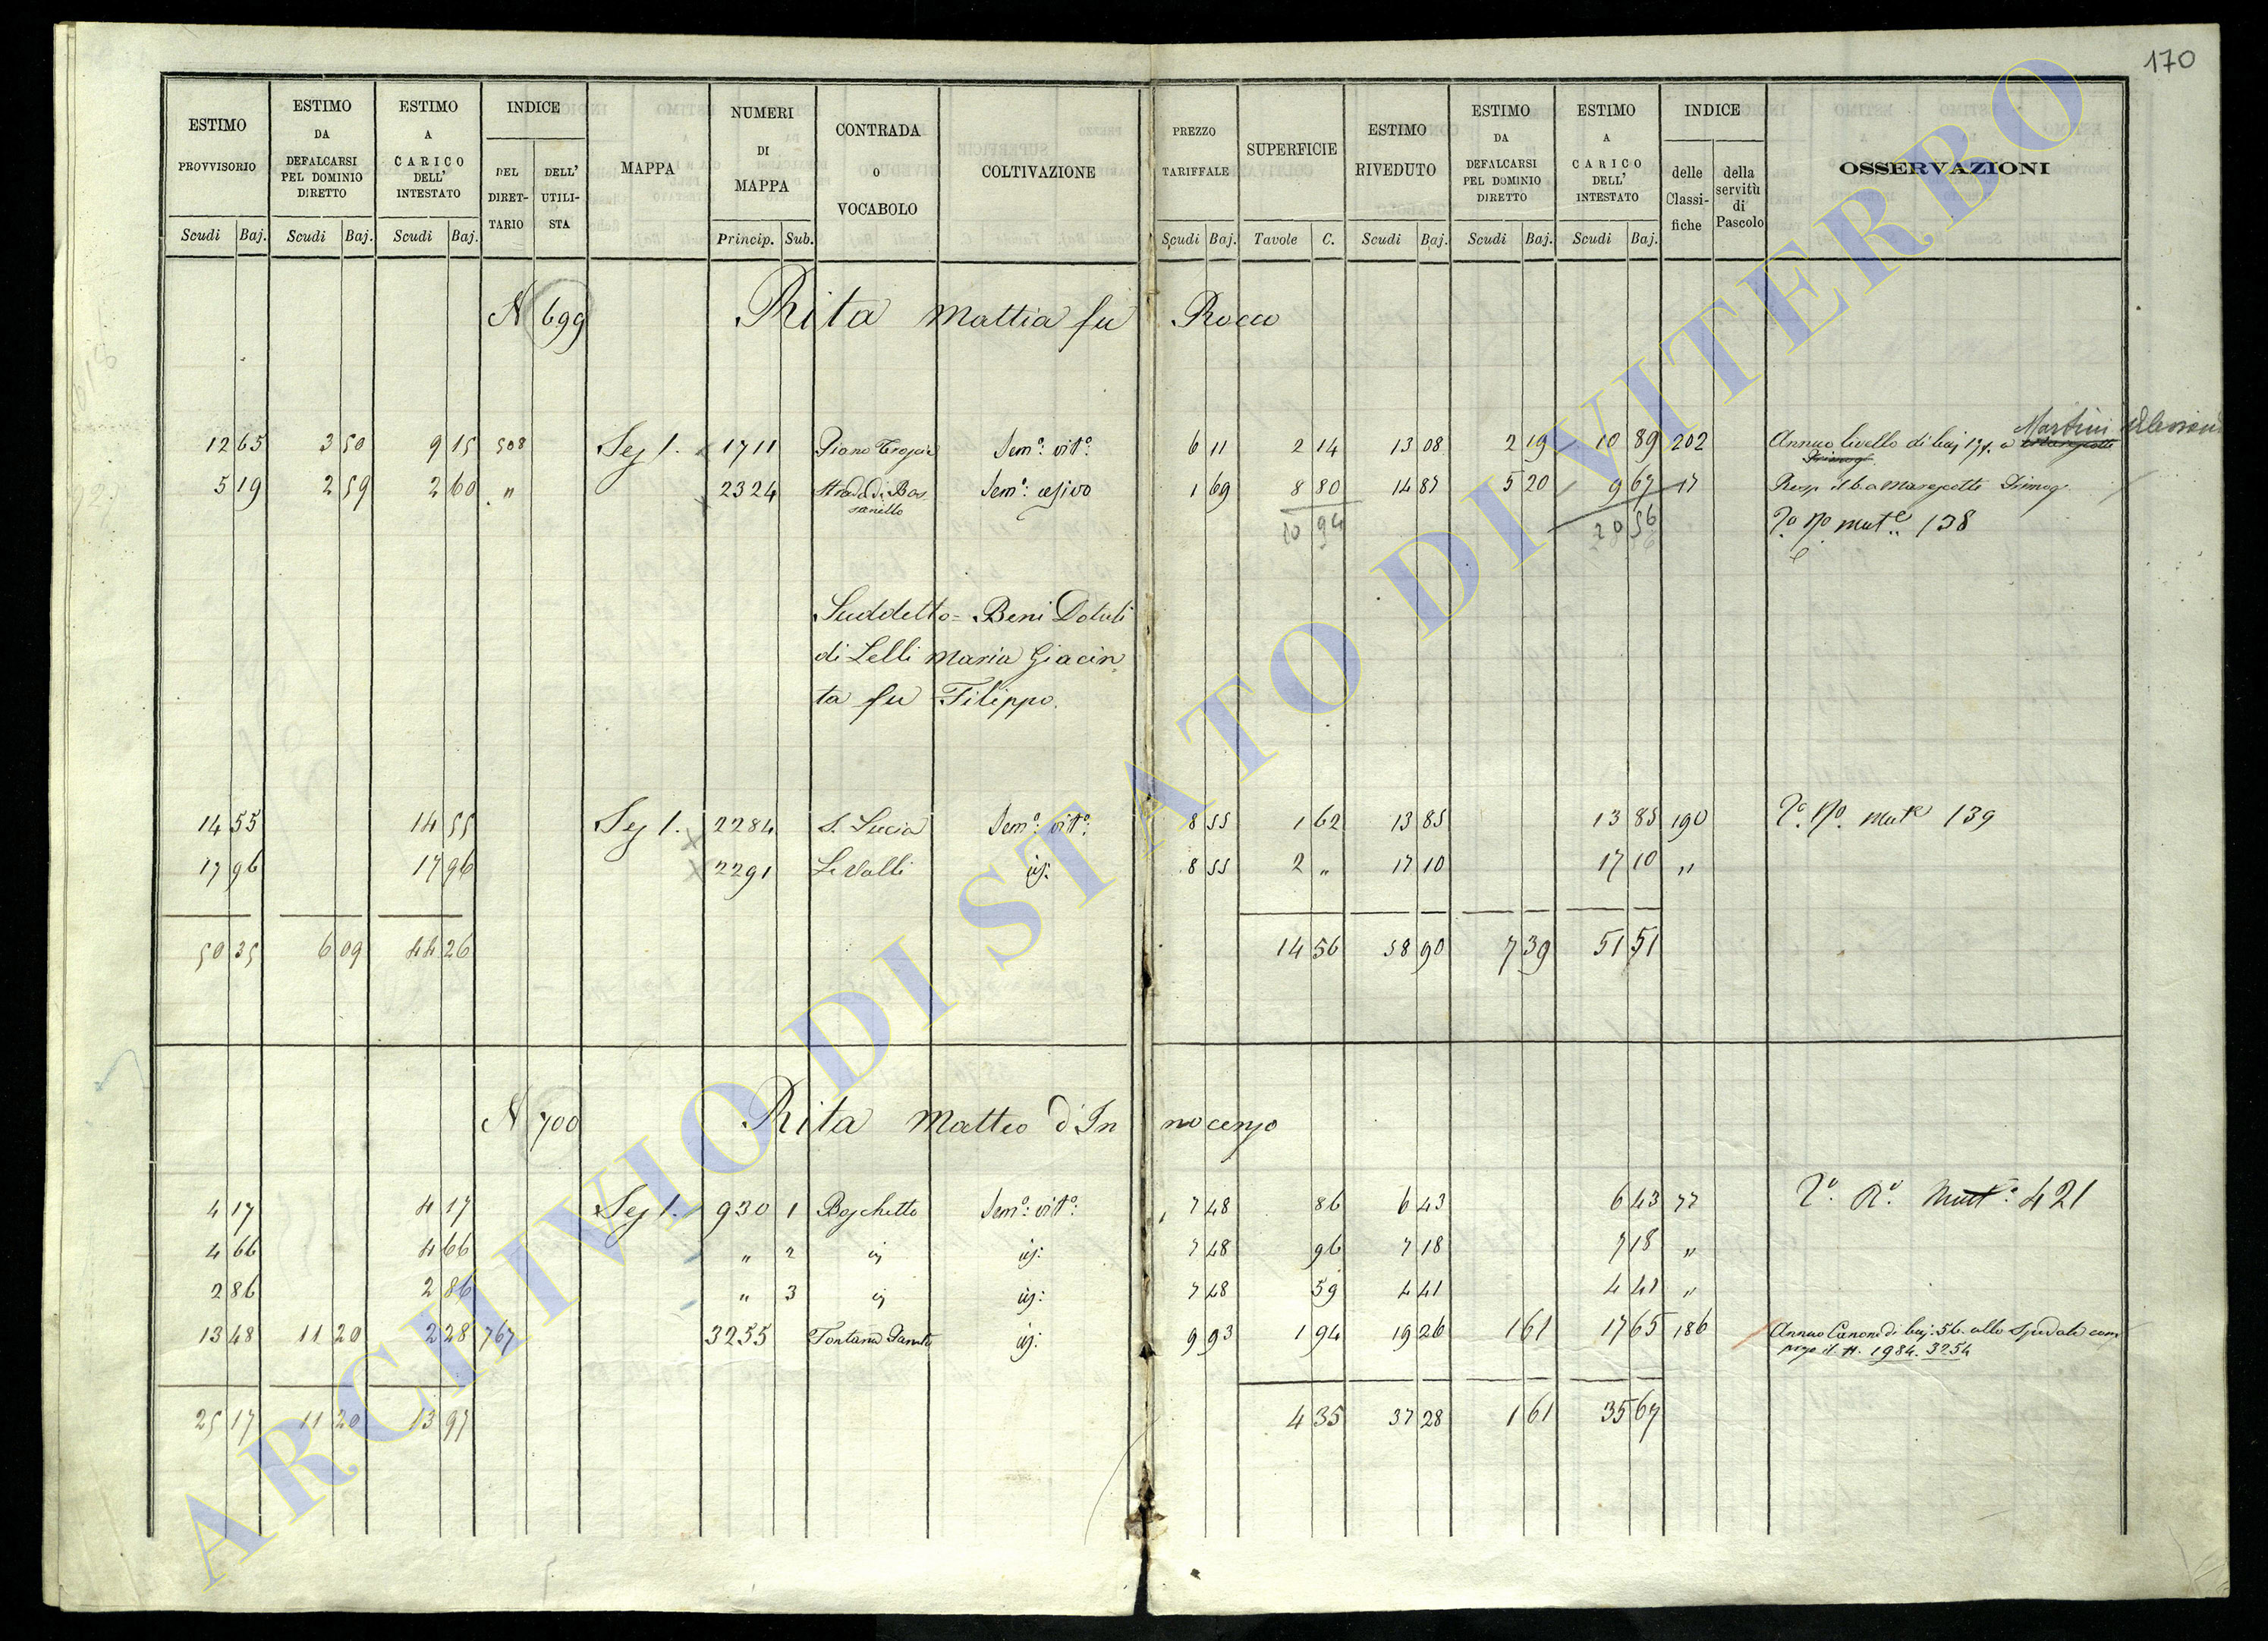 170
ESTIMO PROVVISORIO
ESTIMO DA DEFALCARSI PEL DOMINIO DIRETTO
ESTIMO A CARICO DELL' INTESTATO
INDICE
DEL DIRETTARIO
DELL' UTILISTA
MAPPA
NUMERI DI MAPPA
CONTRADA O VOCABOLO
COLTIVAZIONE
PREZZO TARIFFALE
SUPERFICIE
ESTIMO RIVEDUTO
ESTIMO DA DEFALCARSI PEL DOMINIO DIRETTO
ESTIMO A CARICO DELL' INTESTATO
INDICE
delle Classifiche
della servitù di Pascolo
OSSERVAZIONI
Scudi Baj. Scudi Baj. Scudi Baj. Princip. Sub. Scudi Baj. Tavole C. Scudi Baj. Scudi Baj. Scudi Baj.
N 699 Rita Mattia fu Rocco
Martini
12 65 3 50 9 15 508 Sez 1. 1711 Piano Sem.o vit.o 6 11 2 14 13 08 2 19 10 89 202 Annuo livello di baj 17½ a
5 19 2 59 2 60 " 2324 Strada di Bassanello Sem.o 1 69 8 80 14 87 5 20 9 67 17
10 94 20 56 Mut.e 138
Suddetto = Beni Dotali
di Lelli Maria Giacin
ta fu Filippo.
14 55 14 55 Sez 1. 2284 S. Lucia Sem.o vit.o 8 55 1 62 13 85 13 85 190 Mut.e 139
17 96 17 96 2291 Le Valli id: 8 55 2 " 17 10 17 10 "
50 35 6 09 44 26 14 56 58 90 7 39 51 51
N 700 Rita Matteo d'Innocenzo
4 17 4 17 Sez 1. 930 1 Boschetto Sem.o vit.o 7 48 86 6 43 6 43 77 Mut.e 421
4 66 4 66 " 2 id id: 7 48 96 7 18 7 18 "
2 86 2 86 " 3 id id: 7 48 59 4 41 4 41 "
13 48 11 20 2 28 767 3255 Fontana id: 9 93 1 94 19 26 1 61 17 65 186 Annuo Canone di baj: 56 allo Spedale com
preso il N. 1984. 3254
25 17 11 20 13 97 4 35 37 28 1 61 35 67
ARCHIVIO DI STATO DI VITERBO